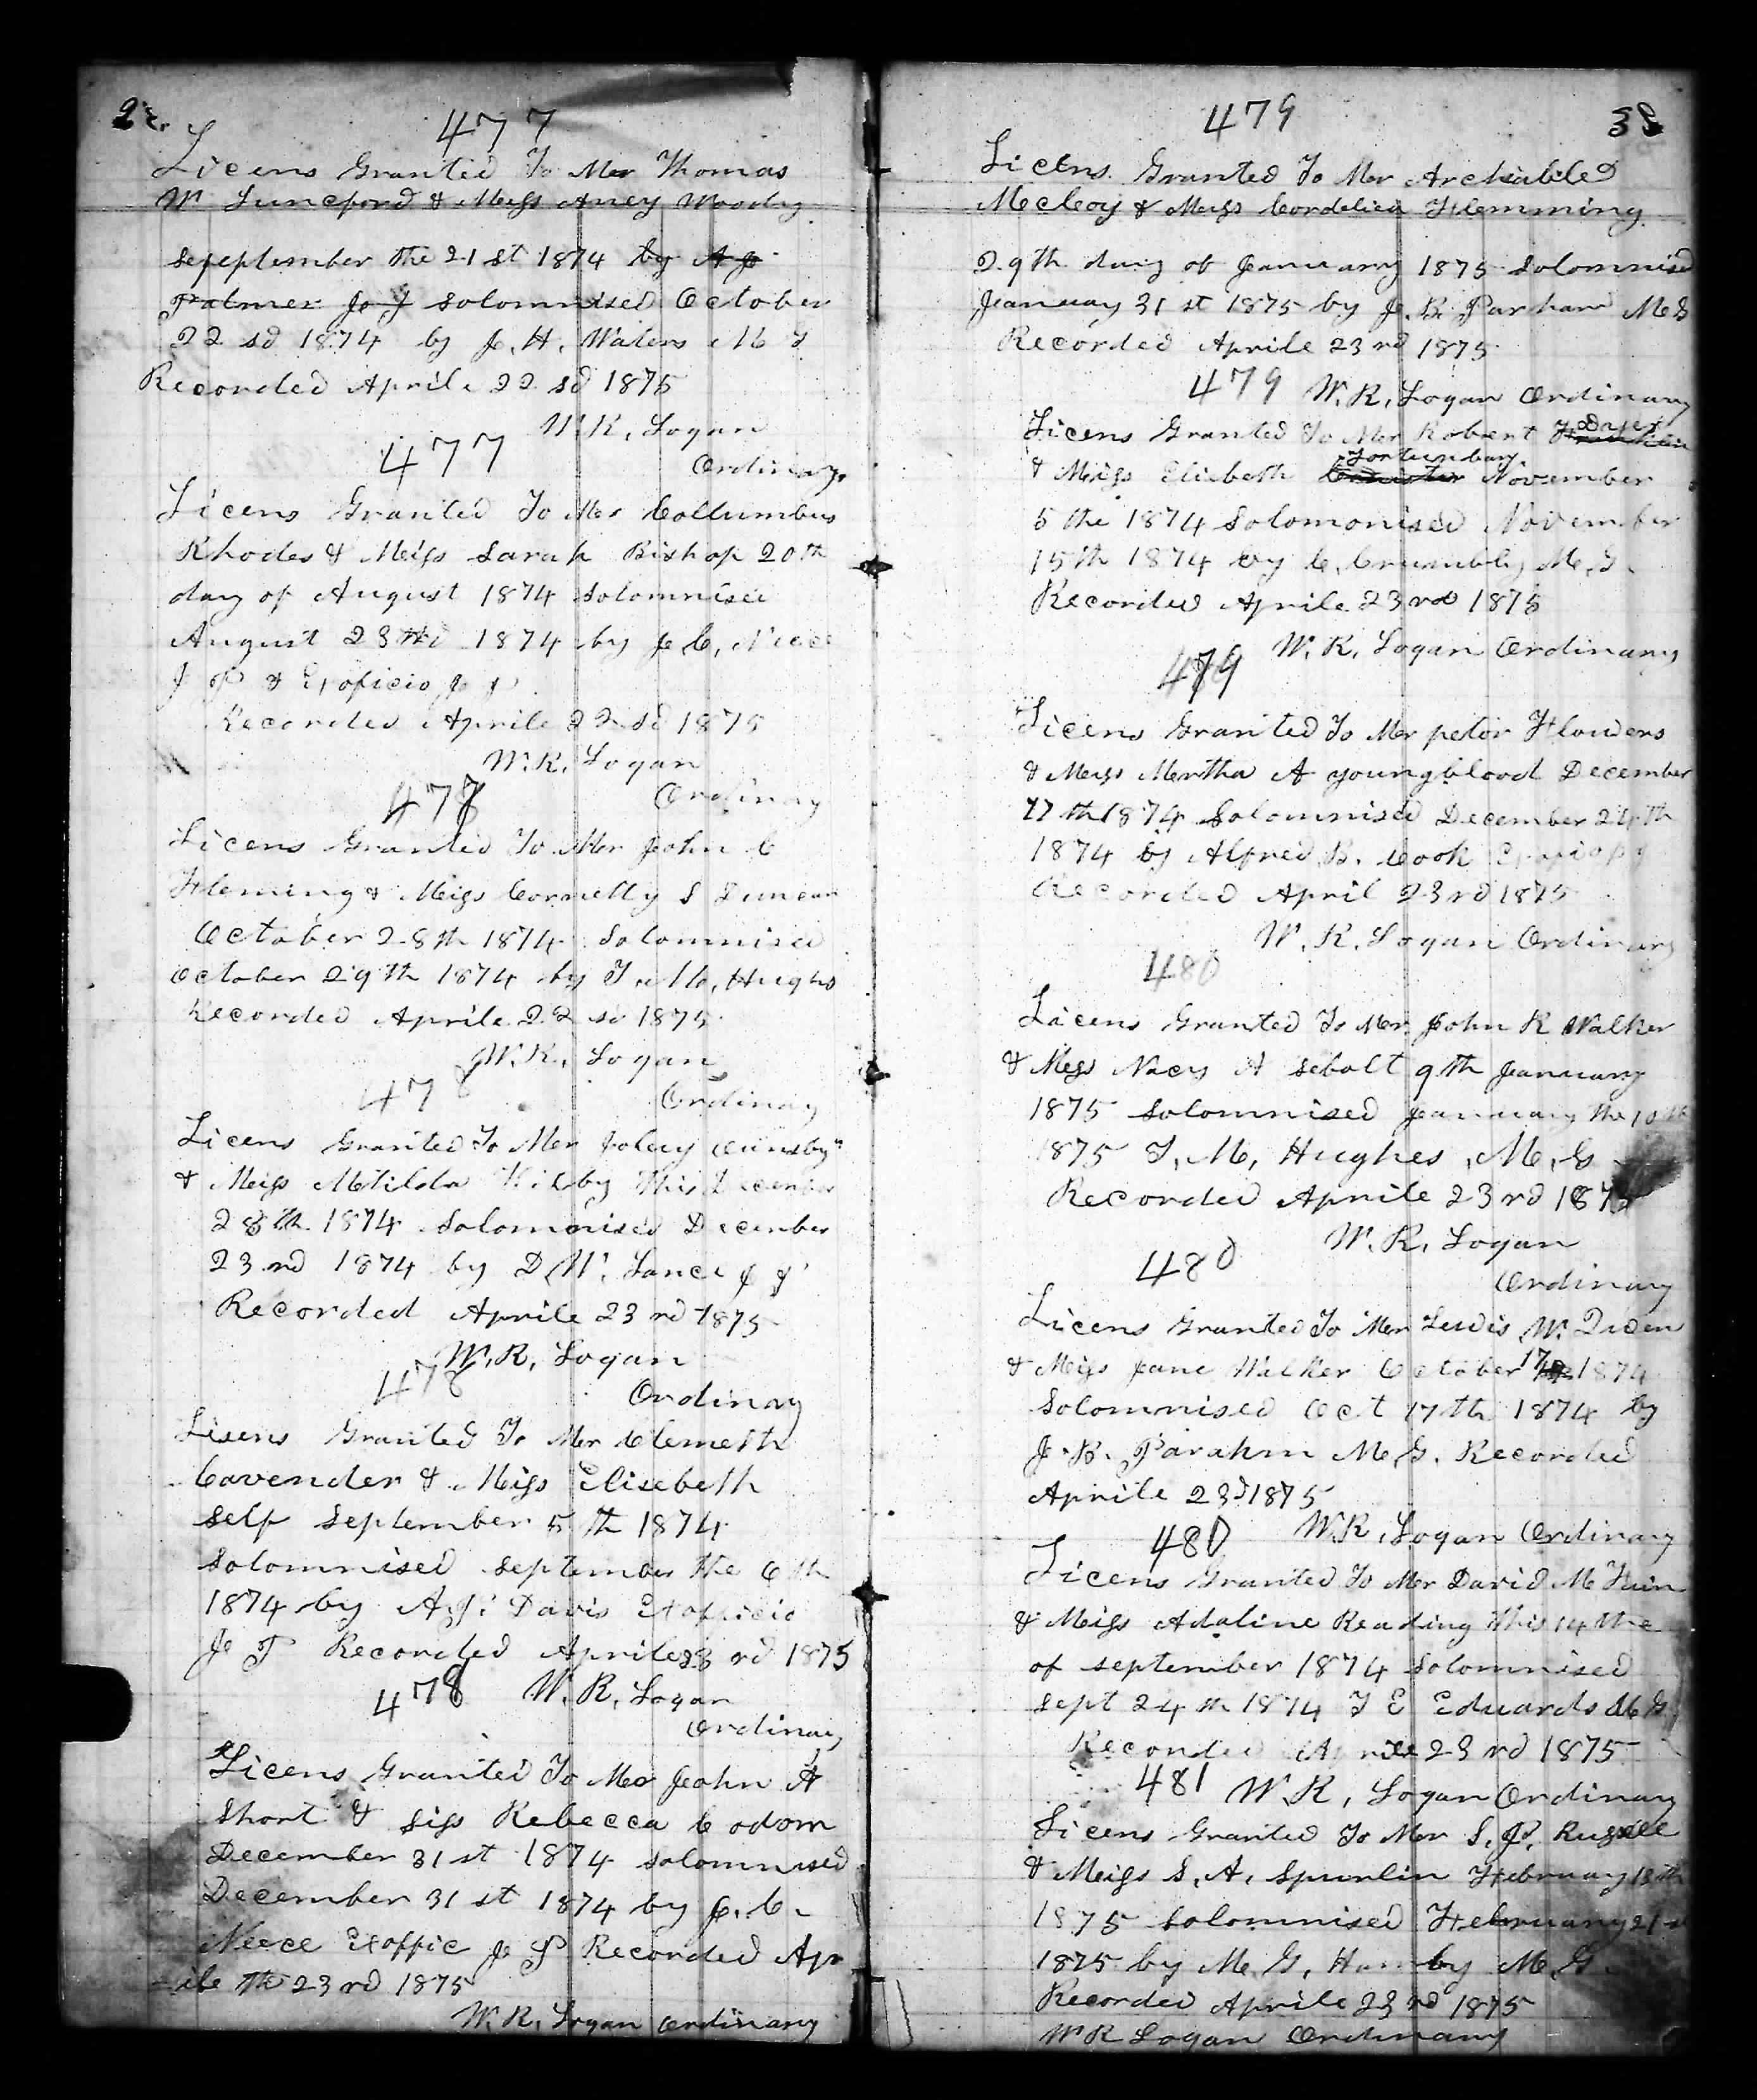 477
Licens Granted To Mer Thomas
W Lunceford & Meigs Ancy Moody
Sepeptember the 21 st 1874 by A J
Palmer Jo J Solomnised October
22 sd 1874 by J. H. Waters M G
Recorded Aprile 22 sd 1875
W. R. Logan
Ordinary
477
Licens Granted To Mer Collumbus
Rhodes & Meigs Sarah Bishop 20th
day of August 1874 Solomnised
August 23rd 1874 by J. C. Neece
J P & Exoficio J P
Recorded Aprile 22 sd 1875
W. R. Logan
Ordinay
478
Licens Granted To Mer John C
Fleming & Meigs Cornelly S Duncan
October 28th 1874 Solomnised
October 29th 1874 by T. M. Hughs
Recorded Aprile 22 sd 1875
W. R. Logan
Ordinay
478
Licens Granted To Mer
& Meigs Matilda Kilby this December
28th 1874 Solomonised December
23 rd 1874 by D. W. Lance J P
Recorded Aprile 23 rd 1875
W. R. Logan
Ordinay
478
Lisens Granted To Mer Clemeth
Cavender & Meigs Elisebeth
Self September 5 th 1874
Solomnised September the 6 th
1874 by A. J. Davis Exoficio
J P Recorded Aprile 23 rd 1875
W. R. Logan
Ordinay
478
Licens Granted To Mer John A
Short & Sigs Rebecca C Odom
December 31 st 1874 Solomnised
December 31 st 1874 by J. C.
Neece Exoffic J P Recorded Apr
-ile th 23 rd 1875
W. R. Logan Ordinary
479
38
Licens Granted To Mer Archiable
McCoy & Meigs Cordeliea Flemming
29th day of Jeanuary 1875 Solomnised
Jeanuay 31 st 1875 by J. B. Parham M G
Recorded Aprile 23 rd 1875
W. R. Logan Ordinary
479
Licens Granted To Mer Robert
& Meigs Eliebeth November
5 the 1874 Solomonised November
15th 1874 by C. Crumbly M. G.
Recorded Aprile 23 rd 1875
W. R. Logan Ordinary
479
Licens Granted To Mer petor Flowers
& Meigs Mertha A youngblood December
17 th 1874 Solomnised December 24th
1874 by Alfred B. Cook
Recorded April 23 rd 1875
W. R. Logan Ordinary
480
Licens Granted To Mer John R Walker
& Megs Nacy A sebolt 9th Jeanuary
1875 Solomnised Jeanuary the 10th
1875 T. M. Hughes, M. G
Recorded Aprile 23 rd 1875
W. R. Logan
Ordinary
480
Licens Granted To Mer Lewis W. Dicen
& Meigs Jane Walker October 17 1874
Solomnised Oct 17th 1874 by
J. B. Parahm M. G. Recorded
Aprile 23d 1875
W. R. Logan Ordinary
480
Licens Granted To Mer David M Fain
& Meigs Adaline Reading this 14 the
of september 1874 Solomnised
Sept 24 th 1874 T E Eduards M G
Recorded Aprile 23 rd 1875
W. R. Logan Ordinary
481
Licens Granted To Mer S. J. Rusell
& Meigs S. A. Spurlin February 18th
1875 Solomnised February 21 st
1875 by M. G. Hamby M. G.
Recorded Aprile 23 rd 1875
W R Logan Ordinary